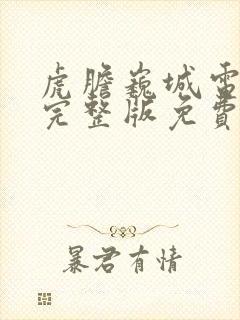 虎膽巍城電
完整版免費
暴君有情